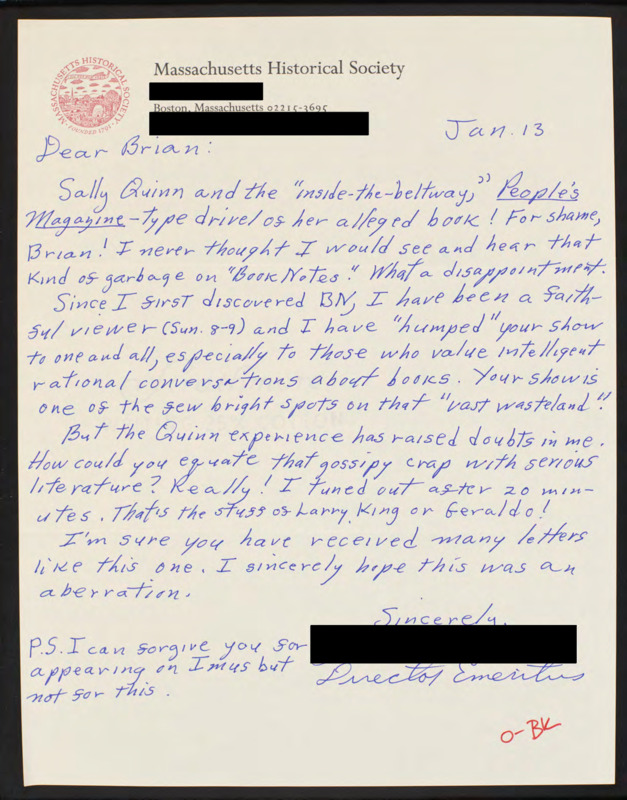 MASSACHUSETTS HISTORICAL SOCIETY
FOUNDED 1791
Massachusetts Historical Society
Boston, Massachusetts 02215-3695
Jan. 13
Dear Brian:
Sally Quinn and the "inside-the-beltway," People's
Magazine-type drivel of her alleged book! For shame,
Brian! I never thought I would see and hear that
kind of garbage on "Book Notes." What a disappointment.
Since I first discovered BN, I have been a faith-
ful viewer (Sun. 8-9) and I have "humped" your show
to one and all, especially to those who value intelligent
rational conversations about books. Your show is
one of the few bright spots on that "vast wasteland".
But the Quinn experience has raised doubts in me.
How could you equate that gossipy crap with serious
literature? Really! I tuned out after 20 min-
utes. That's the stuff of Larry King or Geraldo!
I'm sure you have received many letters
like this one. I sincerely hope this was an
aberration.
Sincerely,
Director Emeritus
P.S. I can forgive you for
appearing on Imus but
not for this.
O-BK